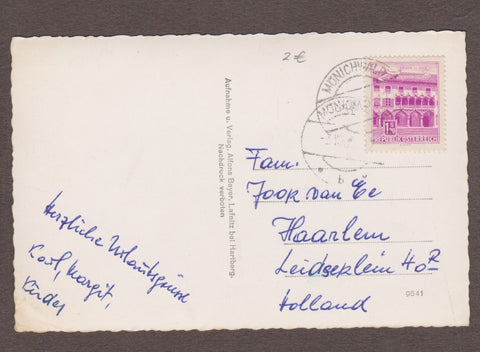 2€
MÖNICHWALD
REPUBLIK ÖSTERREICH
Herzliche Urlaubsgrüsse
Karl, Margit,
Kinder
Aufnahme u. Verlag: Alfons Bayer, Lafnitz bei Hartberg.
Nachdruck verboten
Fam.
Joop van Ee
Haarlem
Leidseplein 40R
Holland
9641